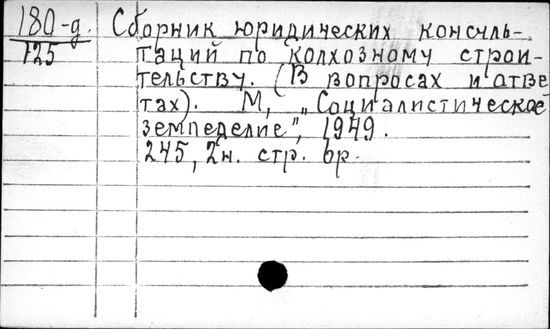 180-д. Сборник юридических консуль-
125 таций по колхозному строи-
тельству. (В вопросах и отве
тах). М, „Социалистическое
земледелие", 1949.
245, 2н. стр. бр.